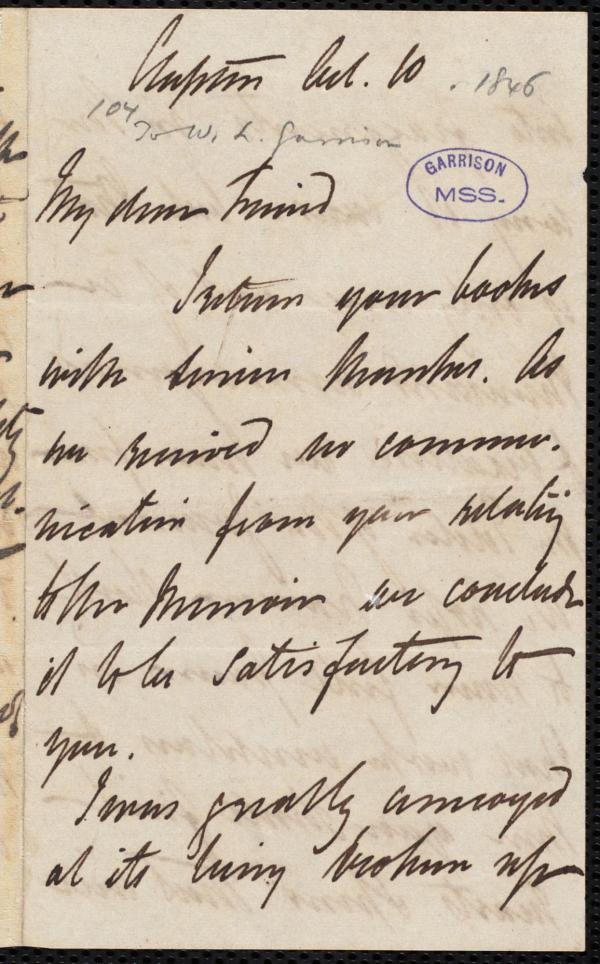 Clapton Oct. 10 . 1846
104
To W. L. Garrison
GARRISON
MSS.
My dear Friend
I return your books
with sincere thanks. As
we received no commu-
nication from you relatig
to the Memoir we conclude
it to be satisfactory to
you.
I was greatly annoyed
at its being broken up